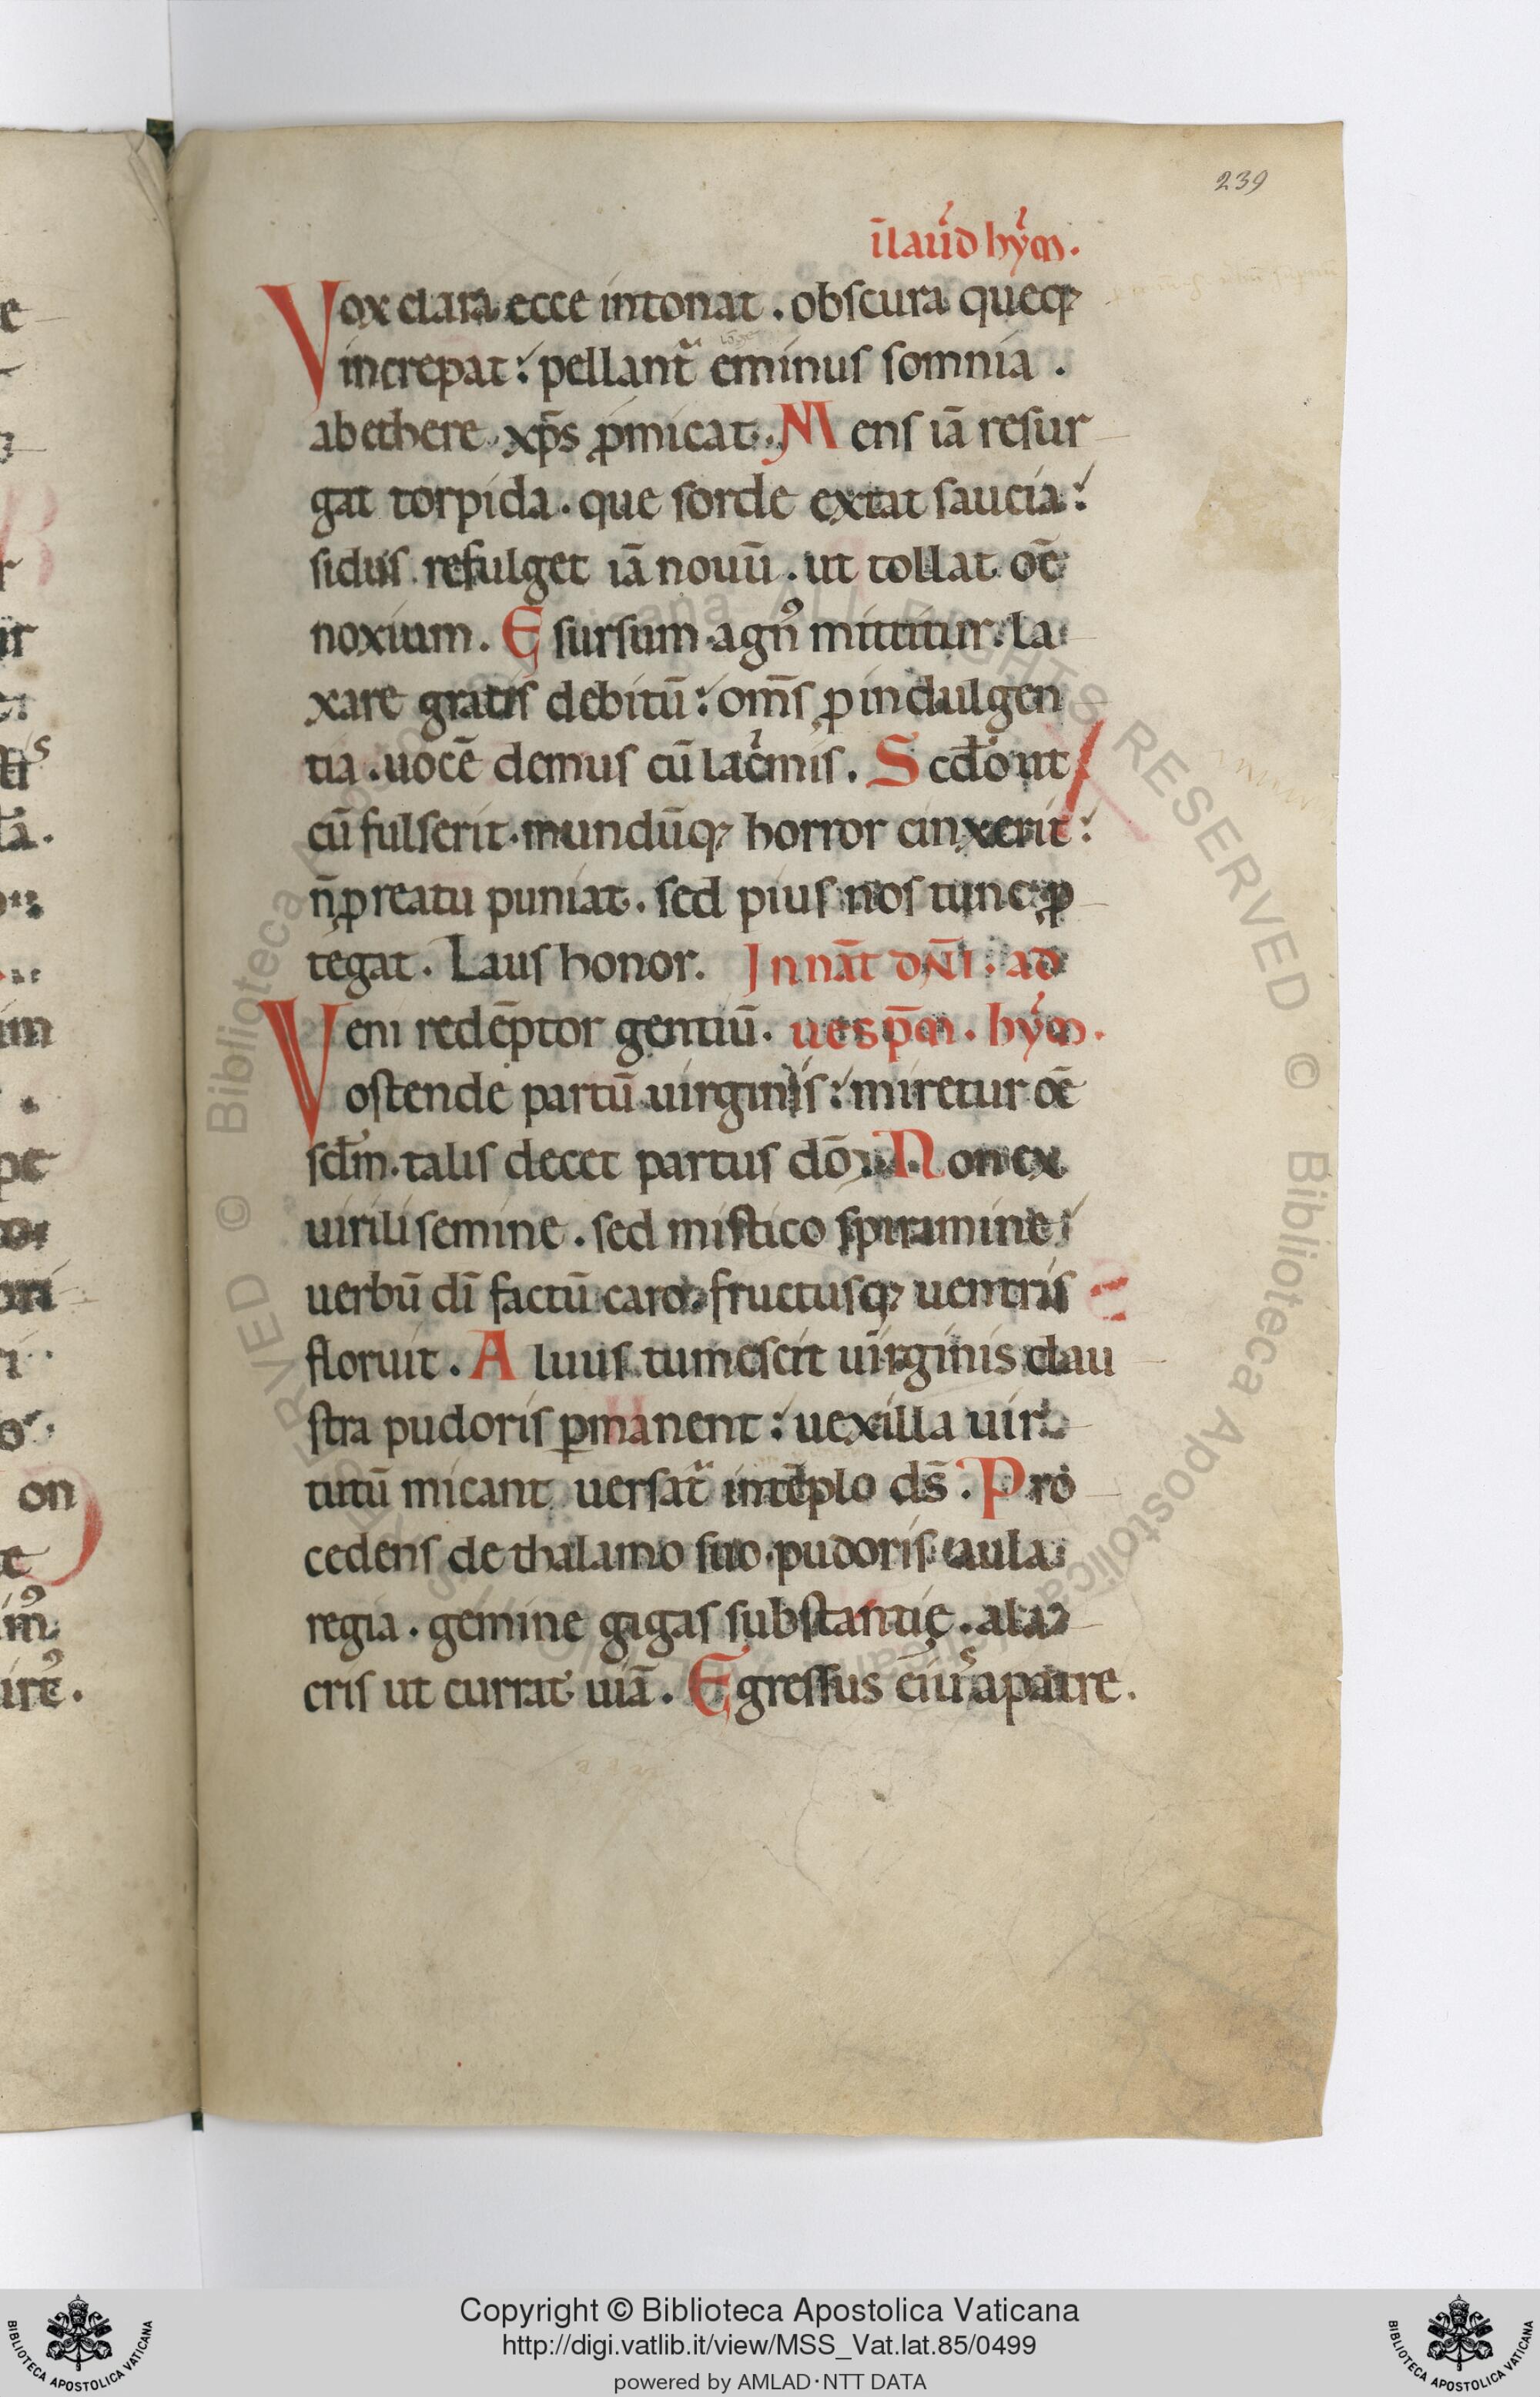 239
ī laud̄ hẏm̄.
Vox clara ecce intonat . obscura queq;
increpat : pellant᷑ eminus somnia .
ab ethere xp̄s p̊micat . Mens iā resur
gat torpida . que sorde extat saucia :
sidus refulget iā nouū . ut tollat oē
noxium . E sursum agn᷒ mittitur . la
xare gratis debitū : om̄s ꝓ indulgen
tia . uocē demus cū lac̍mis . Scd̄o ut
cū fulserit . mundūq; horror cinxerit :
n̄ ꝓ reatu puniat . sed pius nos tunc ꝓ
tegat . Laus honor . In nāt dn̄i . ad
Veni redēptor gentiū . uesp̄m . hẏm̄ .
ostende partū uirginis : miretur oē
scd̄m . talis decet partus dō . Non ex
uirili semine . sed mistico spiramine
uerbū dī factū caro . fructusq; uentris
floruit . Aluus tumescit uirginis clau
stra pudoris ꝑmanent : uexilla uir
tutū micant uersat᷑ in tēplo ds̄ . Pro
cedens de thalamo suo . pudoris aula
regia . gemine gigas substantię . ala
cris ut currat uiā . Egressus ei᷒ a patre .
e
ir
on
im᷒
irē᷒ .
Copyright © Biblioteca Apostolica Vaticana
http://digi.vatlib.it/view/MSS_Vat.lat.85/0499
powered by AMLAD·NTT DATA
BIBLIOTECA APOSTOLICA VATICANA
BIBLIOTECA APOSTOLICA VATICANA